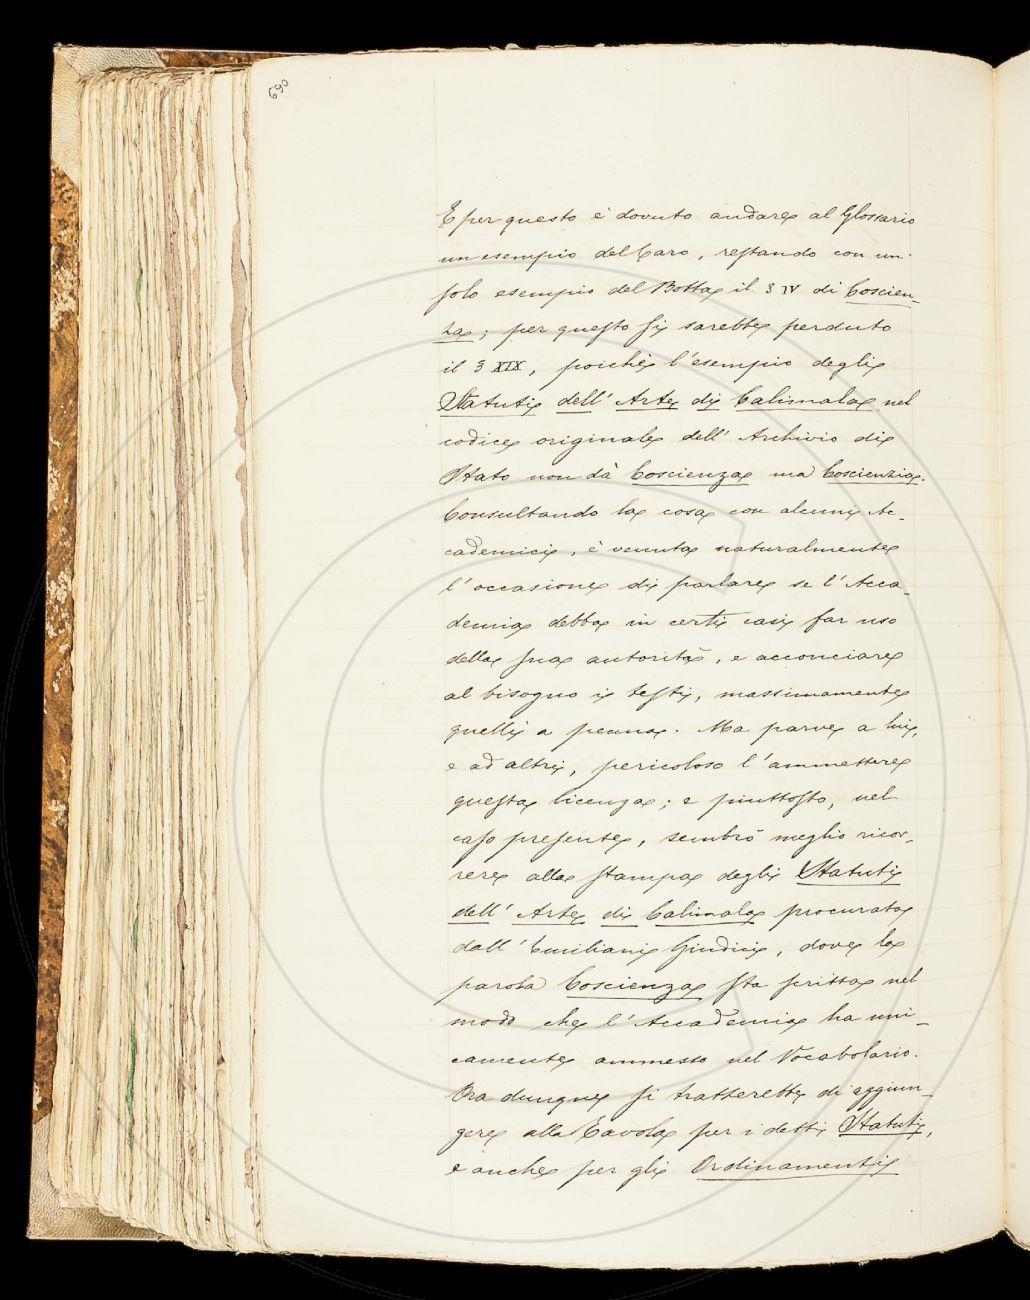 690
E per questo è dovuto andare al Glossario
un esempio del Caro, restando con un
solo esempio del Botta il § IV di Coscien-
za; per questo si sarebbe perduto
il § XIX, poichè l'esempio degli
Statuti dell'Arte di Calimala nel
codice originale dell'Archivio di
Stato non dà Coscienza ma Coscienzia.
Consultando la cosa con alcuni Ac-
cademici, è venuta naturalmente
l'occasione di parlare se l'Acca-
demia debba in certi casi far uso
della sua autorità, e acconciare
al bisogno i testi, massimamente
quelli a penna. Ma parve a lui,
e ad altri, pericoloso l'ammettere
questa licenza; e piuttosto, nel
caso presente, sembrò meglio ricor-
rere alla stampa degli Statuti
dell'Arte di Calimala procurata
dall'Emiliani Giudici, dove la
parola Coscienza sta scritta nel
modo che l'Accademia ha uni-
camente ammesso nel Vocabolario.
Ora dunque si tratterebbe di aggiun-
gere alla Tavola per i detti Statuti,
e anche per gli Ordinamenti